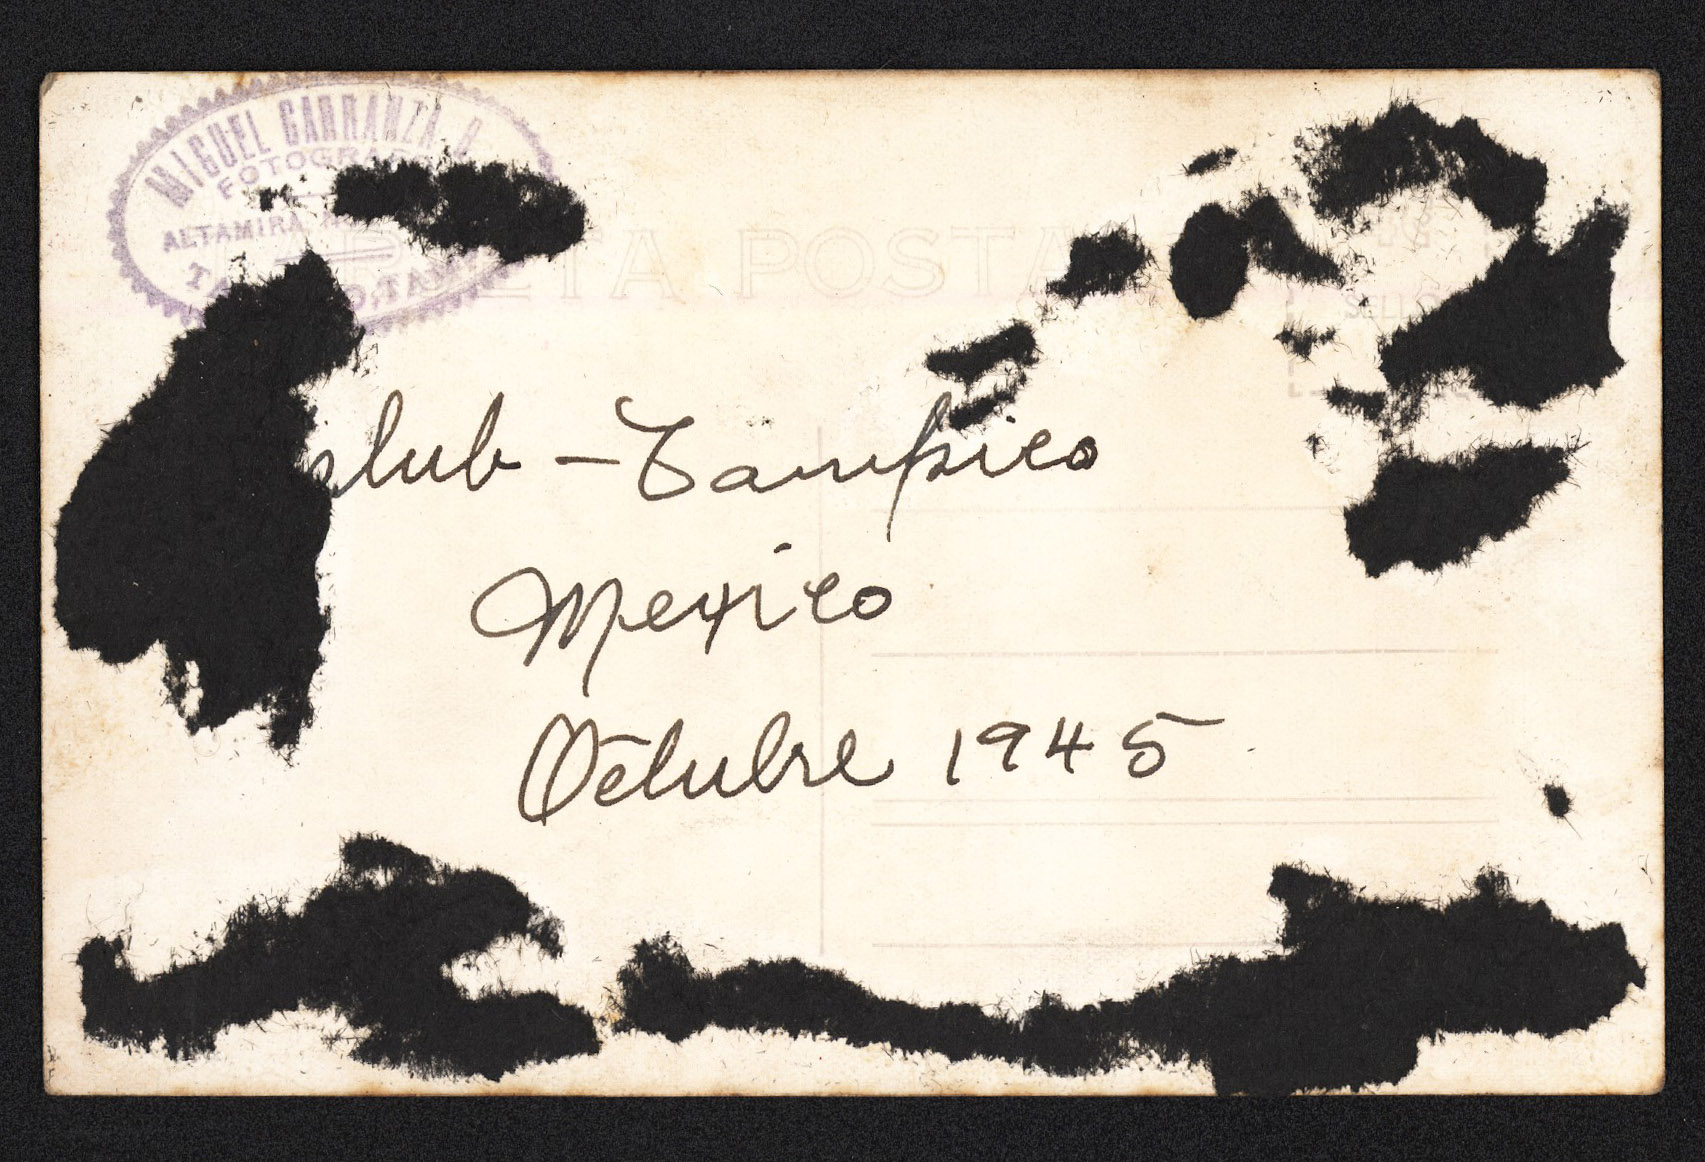 MIGUEL CARRANZA
FOTOGRAFO
ALTAMIRA
POSTAL
SELLO
Club - Tampico
Mexico
Octubre 1945